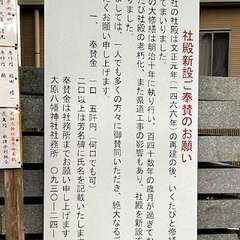 社殿新設ご奉賛のお願い
社の社殿は文正元年(一四六六年)の再建の後、いくたびも修
てまいりました。
の大修繕は明治十年に執り行い、百四十数年の歳月が過ぎてお
び社殿の老朽化、また県道工事の影響もあり、社殿を新設す
りました。
ましては、一人でも多くの方々に御賛同いただき、絶大なるご
たくお願い申し上げます。
奉賛金 一口 五阡円(何口でも可)
二口以上は芳名碑に氏名を記載いたしま
奉賛金は社務所までお願い申し上げます
大原八幡神社社務所 〇九三〇-二四-